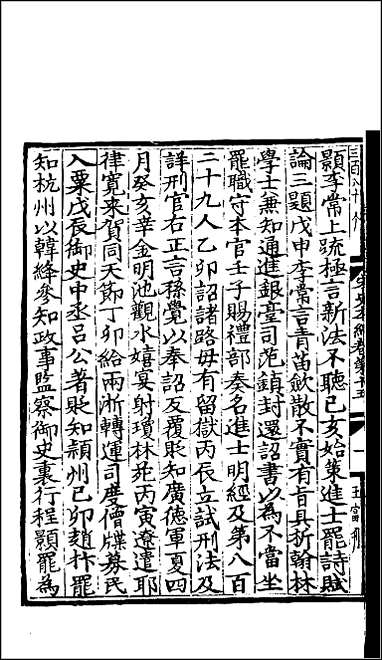 三百八十
宋史本紀卷第十五
顥李常上䟽極言新法不聽己亥始策進士罷詩賦
論三題戊申李常言青苗歛散不實有旨具析翰林
學士兼知通進銀臺司范鎮封還詔書以為不當坐
罷職守本官壬子賜禮部奏名進士明經及第八百
二十九人乙卯詔諸路毋有留獄丙辰立試刑法及
詳刑官右正言孫覺以奉詔反覆貶知廣德軍夏四
月癸亥幸金明池觀水嬉宴射瓊林苑丙寅遼遣耶
律寛來賀同天節丁卯給兩浙轉運司度僧牒募民
入粟戊辰御史中丞呂公著貶知潁州己卯趙抃罷
知杭州以韓絳參知政事監察御史裏行程顥罷為